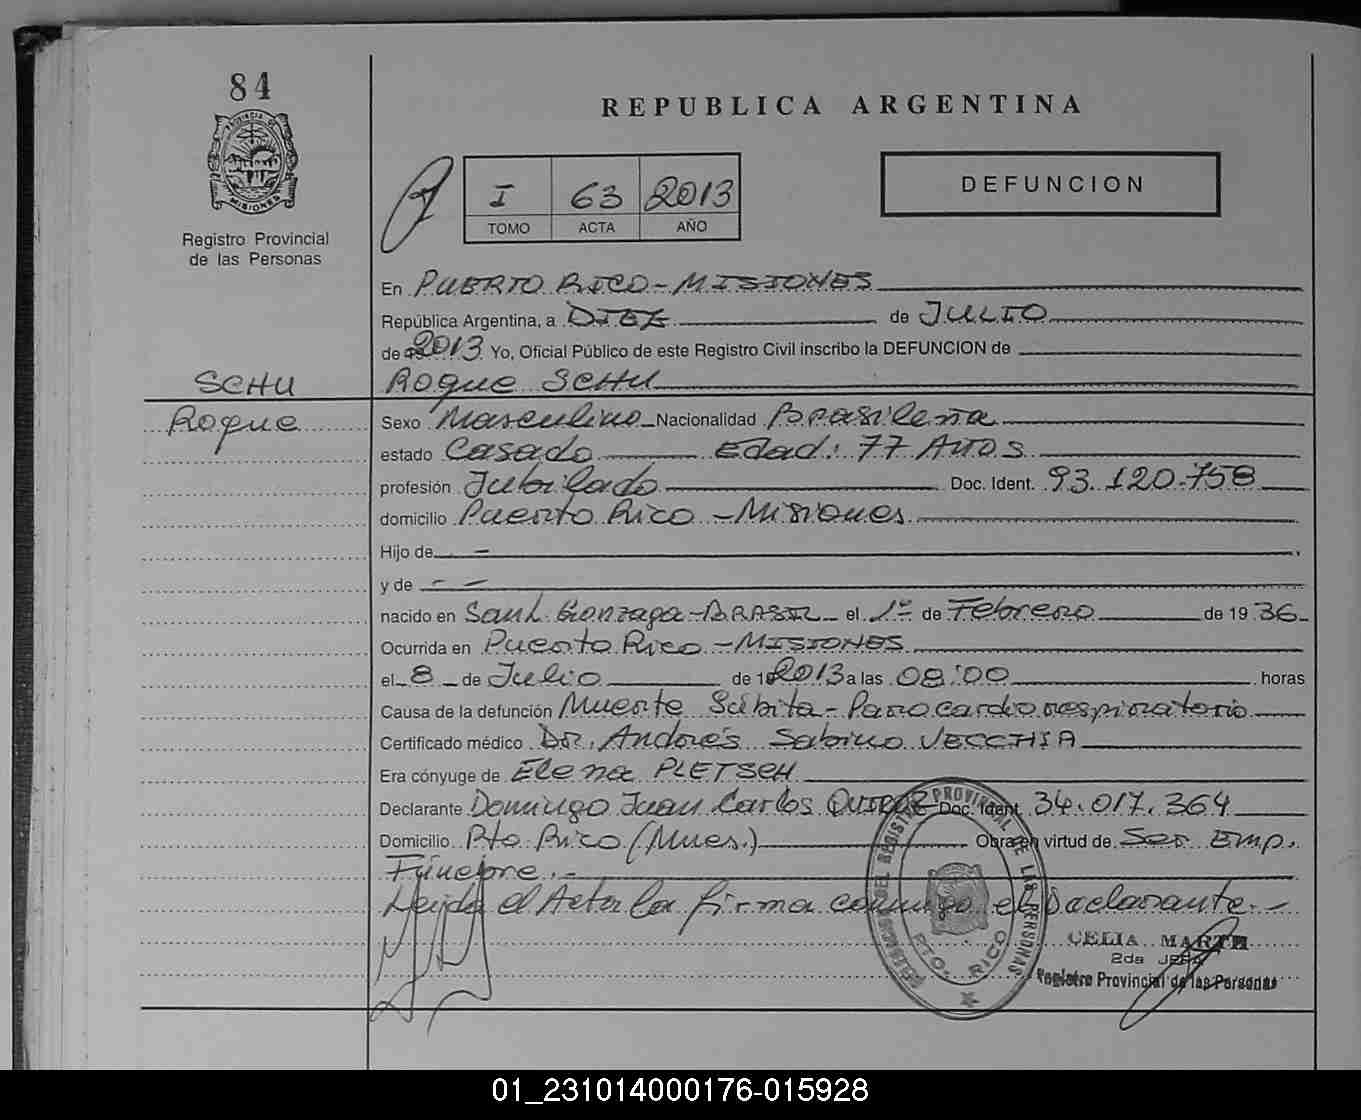 84
PROVINCIA DE
MISIONES
Registro Provincial
de las Personas
REPUBLICA ARGENTINA
I 63 2013
TOMO ACTA AÑO
DEFUNCION
En PUERTO RICO - MISIONES
República Argentina, a DIEZ de JULIO
de 2013 Yo, Oficial Público de este Registro Civil inscribo la DEFUNCION de
SCHU
Roque SCHU
Roque
Sexo Masculino Nacionalidad Brasileña
estado Casado Edad: 77 Años
profesión Jubilado Doc. Ident. 93.120.758
domicilio Puerto Rico - Misiones
Hijo de -
y de - -
nacido en San L. Gonzaga - BRASIL el 1º de Febrero de 1936
Ocurrida en Puerto Rico - MISIONES
el 8 de Julio de 2013 a las 08:00 horas
Causa de la defunción Muerte Súbita - Paro cardiorrespiratorio
Certificado médico Dr. Andrés Sabino VECCHIA
Era cónyuge de Elena PLETSCH
Declarante Domingo Juan Carlos QUIROZ Doc. Ident. 34.017.364
Domicilio Pto. Rico (Mnes.) Obra en virtud de Ser Emp.
Fúnebre.-
Leida el Acta la firma conmigo el Declarante.-
DEL REGISTRO PROVINCIAL DE LAS PERSONAS
PTO. RICO
CELIA MARTH
2da JEFA
Registro Provincial de las Personas
01_231014000176-015928